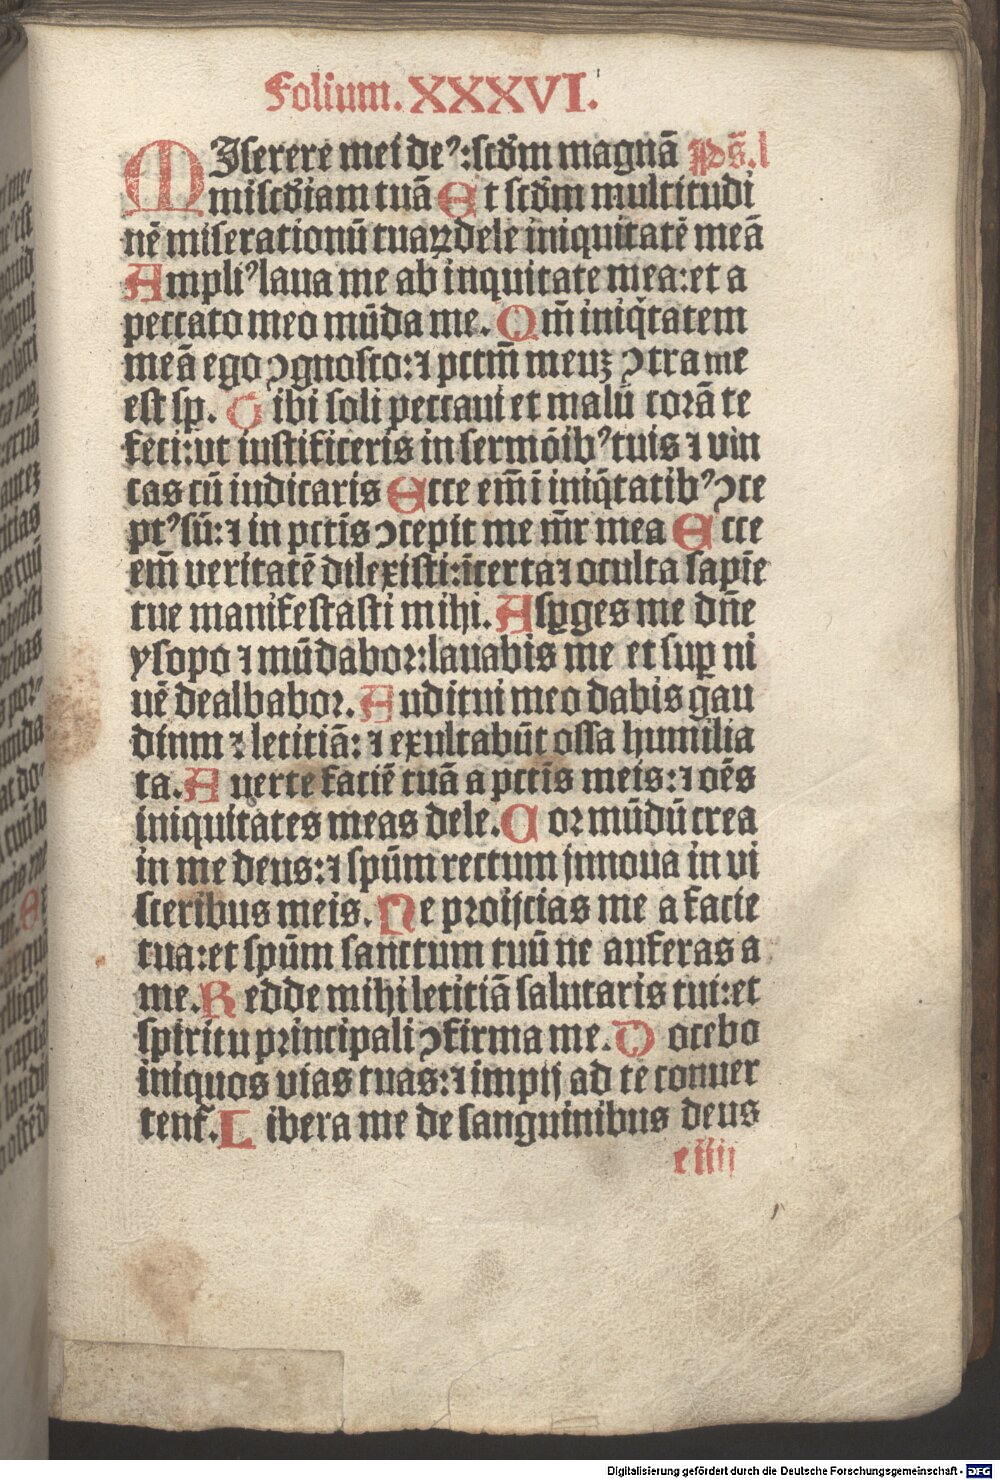 Folium. XXXVI.
MIserere mei deꝰ: scđm magnā Ps̄.l
miscđiam tuā Et scđm multitudi
nē miserationū tuaꝝ dele iniquitatē meā
Ampliꝰ laua me ab inquitate mea: et a
peccato meo mūda me. Qm̄ iniq̄tatem
meā ego ꝯgnosco: ⁊ pctm̄ meuꝫ ꝯtra me
est sꝑ. Tibi soli peccaui et malū corā te
feci: vt iustificeris in sermōibꝰ tuis ⁊ vin
cas cū iudicaris Ecce em̄ ī iniq̄tatibꝰ ꝯce
ptꝰ sū: ⁊ in pctīs ꝯcepit me mr̄ mea Ecce
em̄ veritatē dilexisti: īcerta ⁊ oculta sapīe
tue manifestasti mihi. Asꝑges me dn̄e
ysopo ⁊ mūdabor: lauabis me et suꝑ ni
uē dealbabor. Auditui meo dabis gau
dium ⁊ letitiā: ⁊ exultabūt ossa humilia
ta. Auerte faciē tuā a pctīs meis: ⁊ oēs
iniquitates meas dele. Cor mūdū crea
in me deus: ⁊ spūm rectum jnnoua in vi
sceribus meis. Ne proijcias me a facie
tua: et spūm sanctum tuū ne auferas a
me. Redde mihi letitiā salutaris tui: et
spiritu principali ꝯfirma me. Docebo
iniquos vias tuas: ⁊ impij ad te conuer
tent̄. Libera me de sanguinibus deus
e iiij
Digitalisierung gefördert durch die Deutsche Forschungsgemeinschaft - DFG